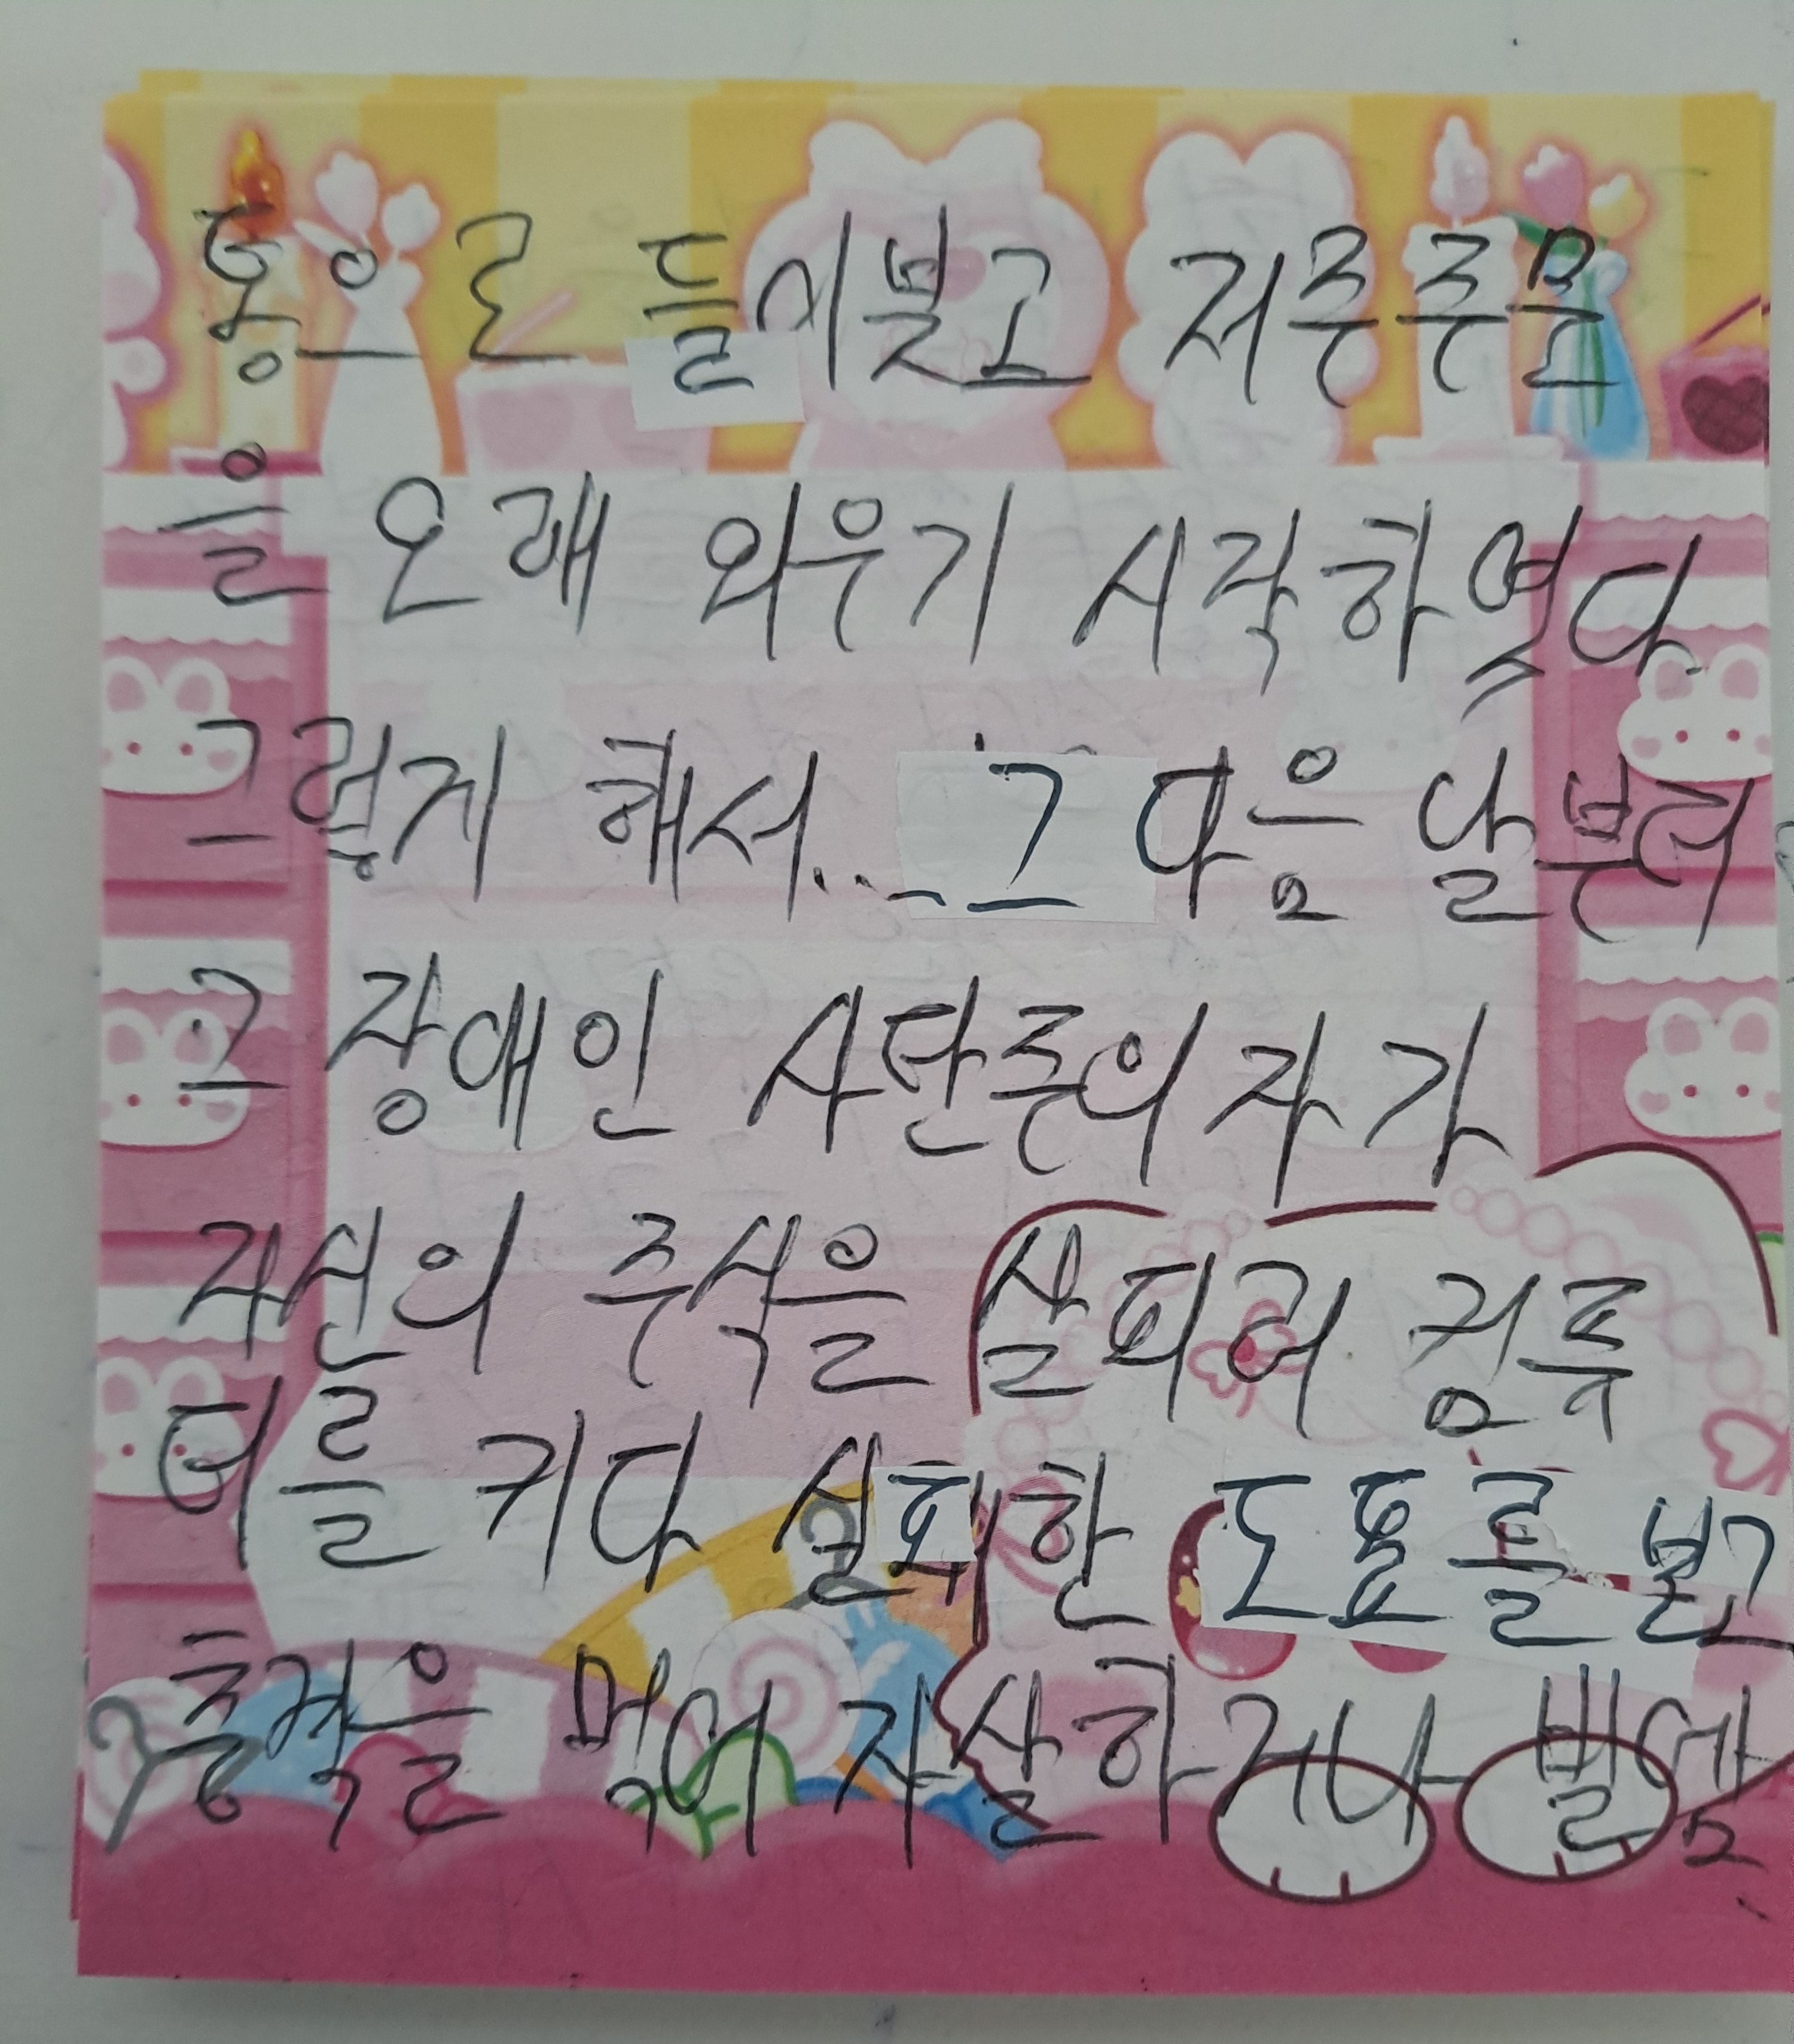 통으로 들이붓고 저주주문
을 오래 외우기 시작하였다
그렇게 해서... 그 다음 날부터
그 장애인 사탄주의자가
자신의 주식을 살피러 컴퓨
터를 키다 실패한 도표를 보고
충격을 먹어 자살하거나